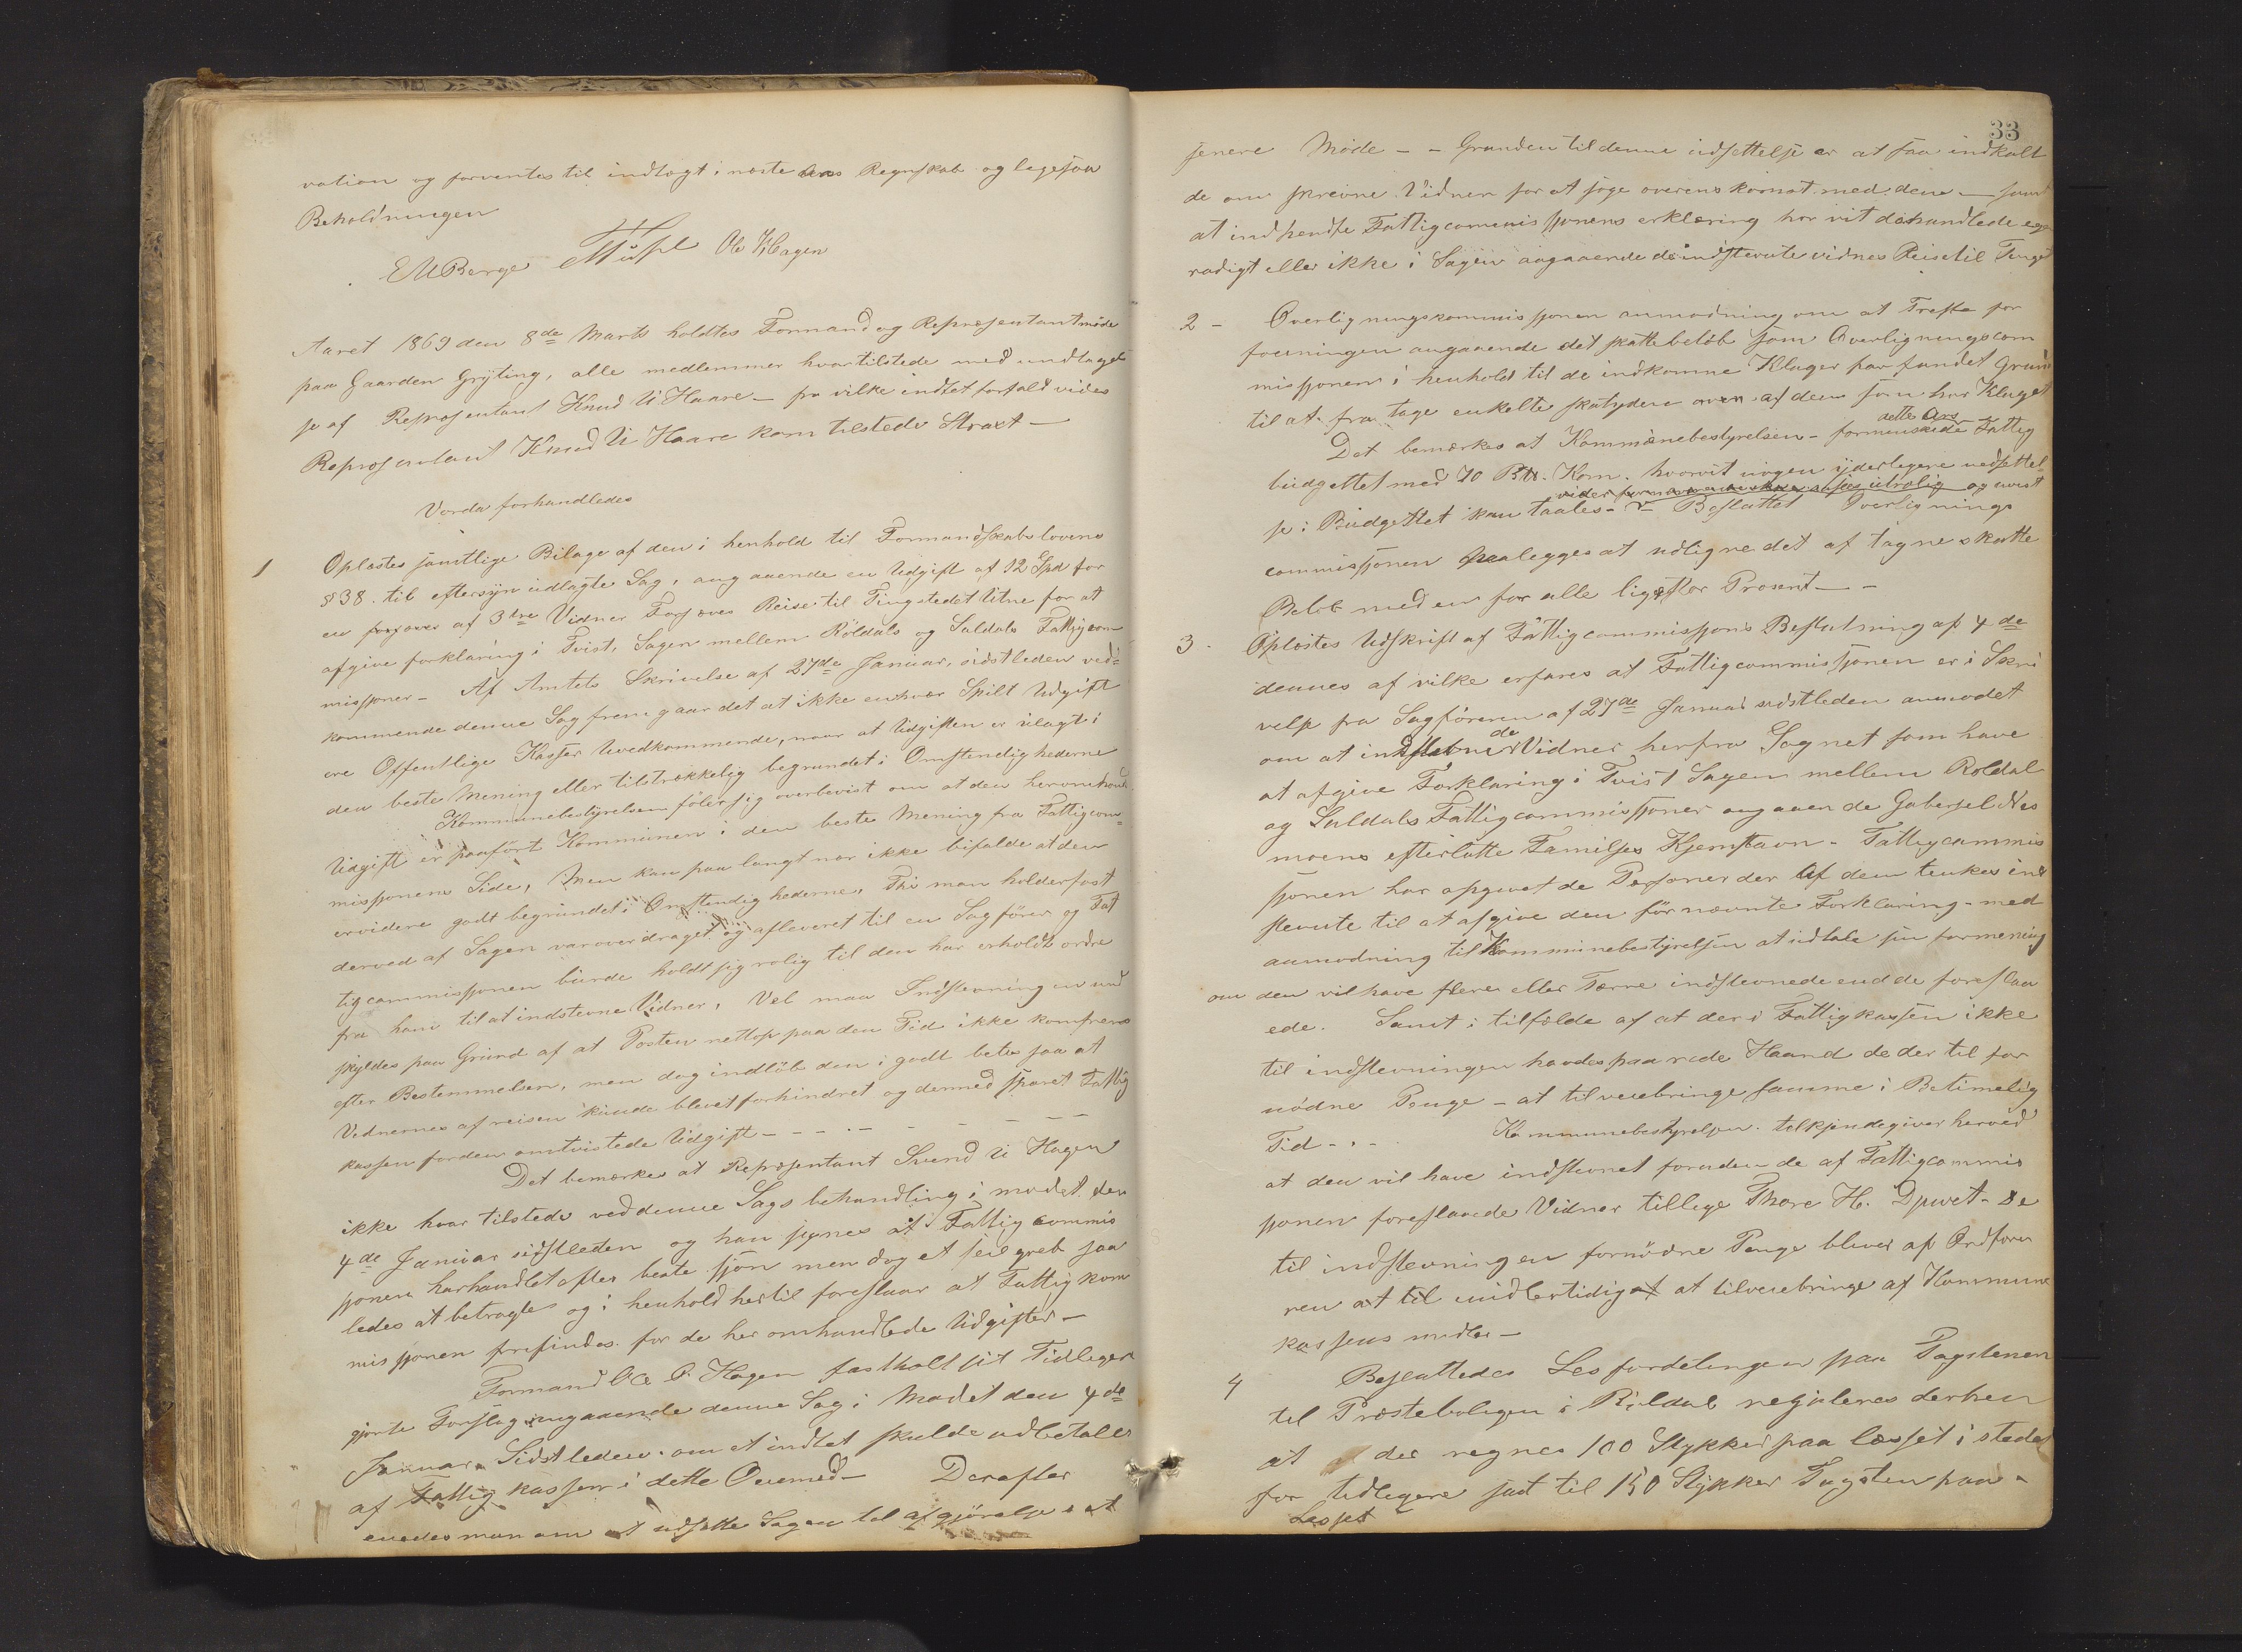 vation og forventes til indtagt i neste Aars Regnskab og legesaa
Beholdningen
E M Berge Ole K Hagen
Aaret 1869 den 8de Marts holdtes Formand og Repræsentantmøde
paa Gaarden Gryting, alle medlemmer hvar tilstede med undtagel
se af Repræsentant Knud U Haare – fra vilke indtet forfald vides
Repræsentant Knud U Haare kom tilstede Straxt –
Vorda forhandledes
1 Oplæstes samtlige Bilage af den i henhold til Formandskabslovens
§ 38. til eftersyn udlagte Sag, angaaende en Udgift af 12 Spd for
en af 3tre Vidner Reise til Tingstedet Utne for at
afgive forklaring i Tvist, Sagen mellem Röldals og Suldals Fattigcom
missjoner – Af Amtets Skrivelse af 27de Januar, sidstleden ved
kommende denne Sag fremgaar det at ikke enhver Spilt Udgift
ere Offentlige Kasser Uvedkommende, naar at Udgiften er ilagt i
den beste Mening eller tilstrækkelig begrundet i Omstendighederne
Kommunebestyrelsen föler sig overbevist om at den heromhand
Udgift er paafört Kommunen i den beste Mening fra Fattigcom=
missjonens Side, Men kan paa langt nær ikke bifalde at den
ervidere godt begrundet i Omstendighederne, Thi man holder fast
derved af Sagen var overdraget og afleveret til en Sagförer og Fat
tigcommissjonen burde holdt sig rolig til den har erholdt ordre
fra ham til at indstevne Vidner, Vel maa Indstevningen und
skyldes paa Grund af at Posten nettop paa den Tid ikke komfrem
efter Bestemmelsen, men dog indlöb den i godt betes saa at
Vednernes afreisen kunde blevet forhindret og dermed sparet Fattig
kassen for den omtvistede Udgift – – – . – – – – –
Det bemærkes at Repræsentant Svend U Hagen
ikke hvar tilstede ved denne Sags behandling i mødet den
4de Januar sidstleden og han synes at Fattigcommis
sjonen har handlet efter beste sjön men dog et feilgreb saa
ledes at betragte og i henhold hertil foreslaar at Fattigkom
missjonen frifindes for de her omhandlede Udgifter –
Formand Ole O. Hagen fastholt sit Tidligere
gjorte Forslag angaaende denne Sag i Mødet den 4de
Januar Sidstleden om at indtet skulde udbetales
af Fattigkassen i dette Öiemed – Derefter
enedes man om at udsette Sagen til afgjörelse i et
33
senere Møde – – Grunden til denne udsettelse er at faa indkalt
de om skrevne Vidner for at söge overenskomst med dem – samt
at indhendte Fattigcommissjonens erklæring hor vit de handlede egen
radigt eller ikke i Sagen angaaende de indstevnte vidnes Reise til Tinget
2 – Overligningskommissjonen anmodning om at Treffe for
föiningen angaaende det skattebelöb som Overligningscom
missjonen i henhold til de indkomne Klager har fundet Grund
til at fra tage enkelte skatydere af dem som har Klaget
Det bemærkes at Kommunebestyrelsen – formindskede dette Aars Fattig
budgettet med 70 Btr. Korn. hvorvit nogen yderlegere nedsettel
se i Budgettet kan taales – utrolig og uvist
Besluttet Overlignings
commissjonen paalegges at udligne det af tagne skatte
Belöb med en for alle ligestor Prosent – –
3. Oplæstes Udskrift af Fattigcommissjons Beslutning af 4de
dennes af vilke erfares at Fattigcommissjonen er i Skri
velse fra Sagföreren af 27de Januar sidstleden anmodet
om at indstevne de Vidner herfra Sognet som have
at afgive Forklaring i Tvist Sagen mellem Roldal
og Suldals Fattigcommissjoner angaaende Gabersel Nes
moens efterlatte Familjes Hjemstavn – Fattigcommis
sjonen har opgivet de Personer der af dem tenkes ind
stevnte til at afgive den för nævnte Forklaring – med
anmodning til Kommunebestyrelsen at udtale sin formening
om den vil have flere eller Færre indstevnede end de foreslaa
ede. Samt i tilfælde af at der i Fattigkassen ikke
til indstevningen havdes paa rede Haand de der til for
nödne Penge – at tilveiebringe samme i Betimelig
Tid – . – Kommunebestyrelsen tilkjendegiver herved
at den vil have indstevnet foruden de af Fattigcommis
sjonen foreslaaede Vidner tillige Thore H. – De
til indstevningen fornödne Penge bliver af Ordföre
ren at til midlertidig at tilveiebringe af Kommune
kassens midler –
4 Besluttedes Lesfordelingen paa Tagstenen
til Prestebolegen i Röldal reguleres derhen
at der regnes 100 Stykker paa læsset i stedet
for tidlegere sat til 150 Stykker Tagsten paa –
Lesset